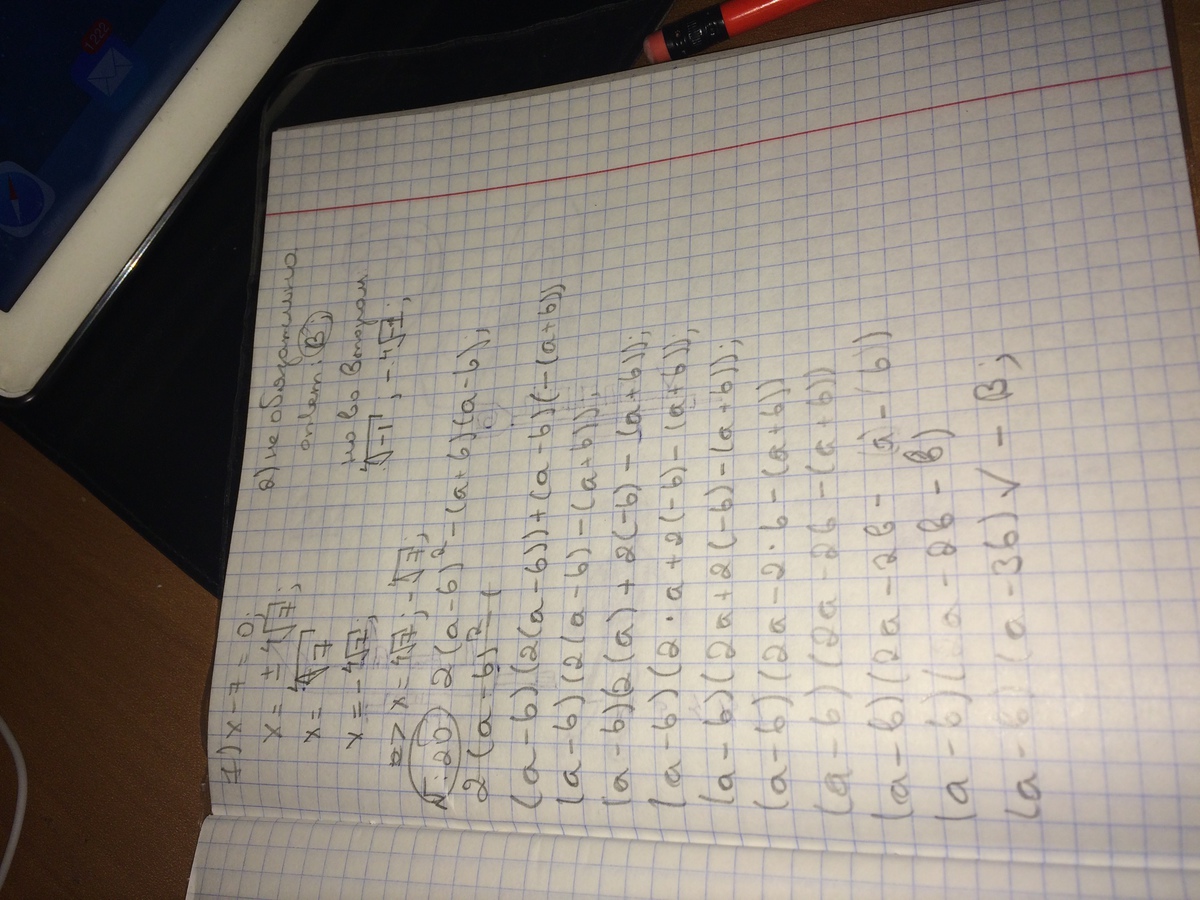 1) x - 7 = 0;
x = ± ∜7;
x = ∜7
x = - ∜7;
=> x = ∜7; - ∜7;
2) не обязательно
ответ: В;
но во втором
∜-1, - ∜-1;
√:20) 2(a-b)² - (a+b)(a-b);
2(a-b)² - (
(a-b)(2(a-b)) + (a-b)(-(a+b));
(a-b)(2(a-b) - (a+b));
(a-b)(2(a) + 2(-b) - (a+b));
(a-b)(2·a + 2(-b) - (a+b));
(a-b)(2a + 2(-b) - (a+b));
(a-b)(2a - 2·b - (a+b))
(a-b)(2a - 2b - (a+b))
(a-b)(2a - 2b - (a) - (b))
(a-b)(a - 2b - b)
(a-b)(a-3b) √ - В;
1.222